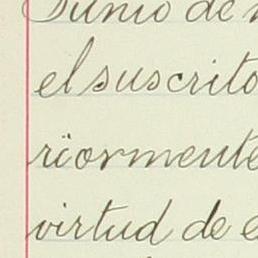 Junio de
el suscrito
riormente
virtud de e